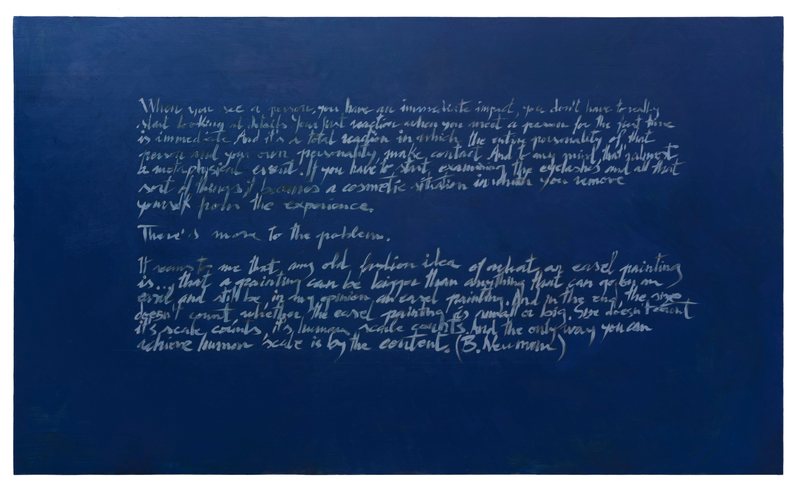 When you see a person, you have an immediate impact, you don't have to really
start looking at details. Your first reaction when you meet a person for the first time
is immediate. And it's a total reaction in which the entire personality of that
person and your own personality make contact. And to my mind that's almost
a metaphysical event. If you have to start examining the eyelashes and all that
sort of things, it becomes a cosmetic sitation in which you remove
yourself from the experience.
There's more to the problem.
It seems to me that any old fashion idea of what an easel painting
is... that a painting can be larger than anything that can go by on
easel and still be, in my opinion an easel painting. And in the end, the size
doesn't count whether the easel painting is small or big. Size doesn't count
it's scale counts, it's human scale counts. And the only way you can
achieve human scale is by the content. (B. Newmann)